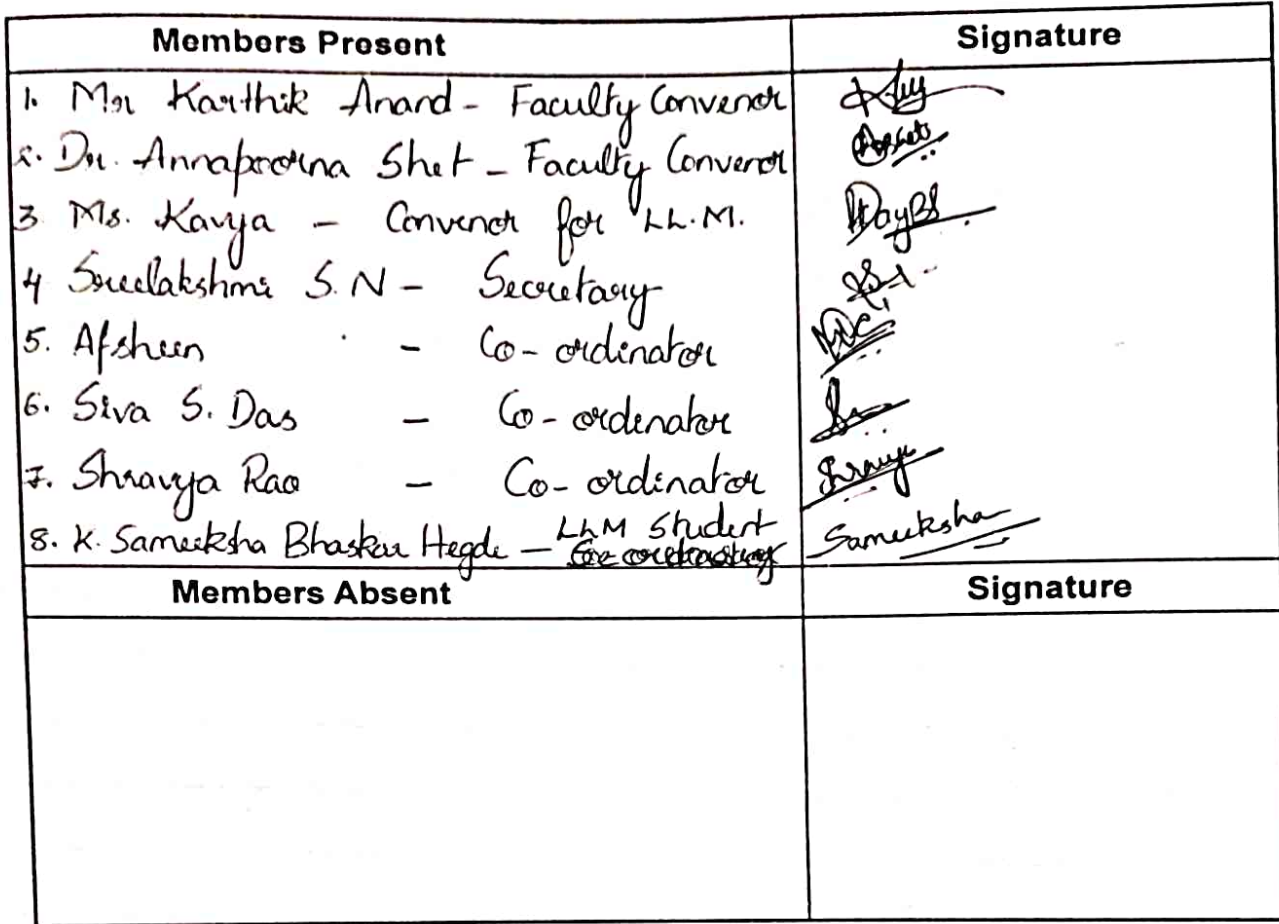 Members Present Signature
1. Mr Karthik Anand - Faculty Convenor
2. Dr. Annapoorna Shet - Faculty Convenor
3 Ms. Kavya - Convenor for LL.M.
4 Sreelakshmi S.N - Secretary
5. Afsheen - Co-ordinator
6. Siva S. Das - Co-ordinator
7. Shravya Rao - Co-ordinator
8. K. Sameeksha Bhaskar Hegde - LLM Student Sameeksha
Members Absent Signature